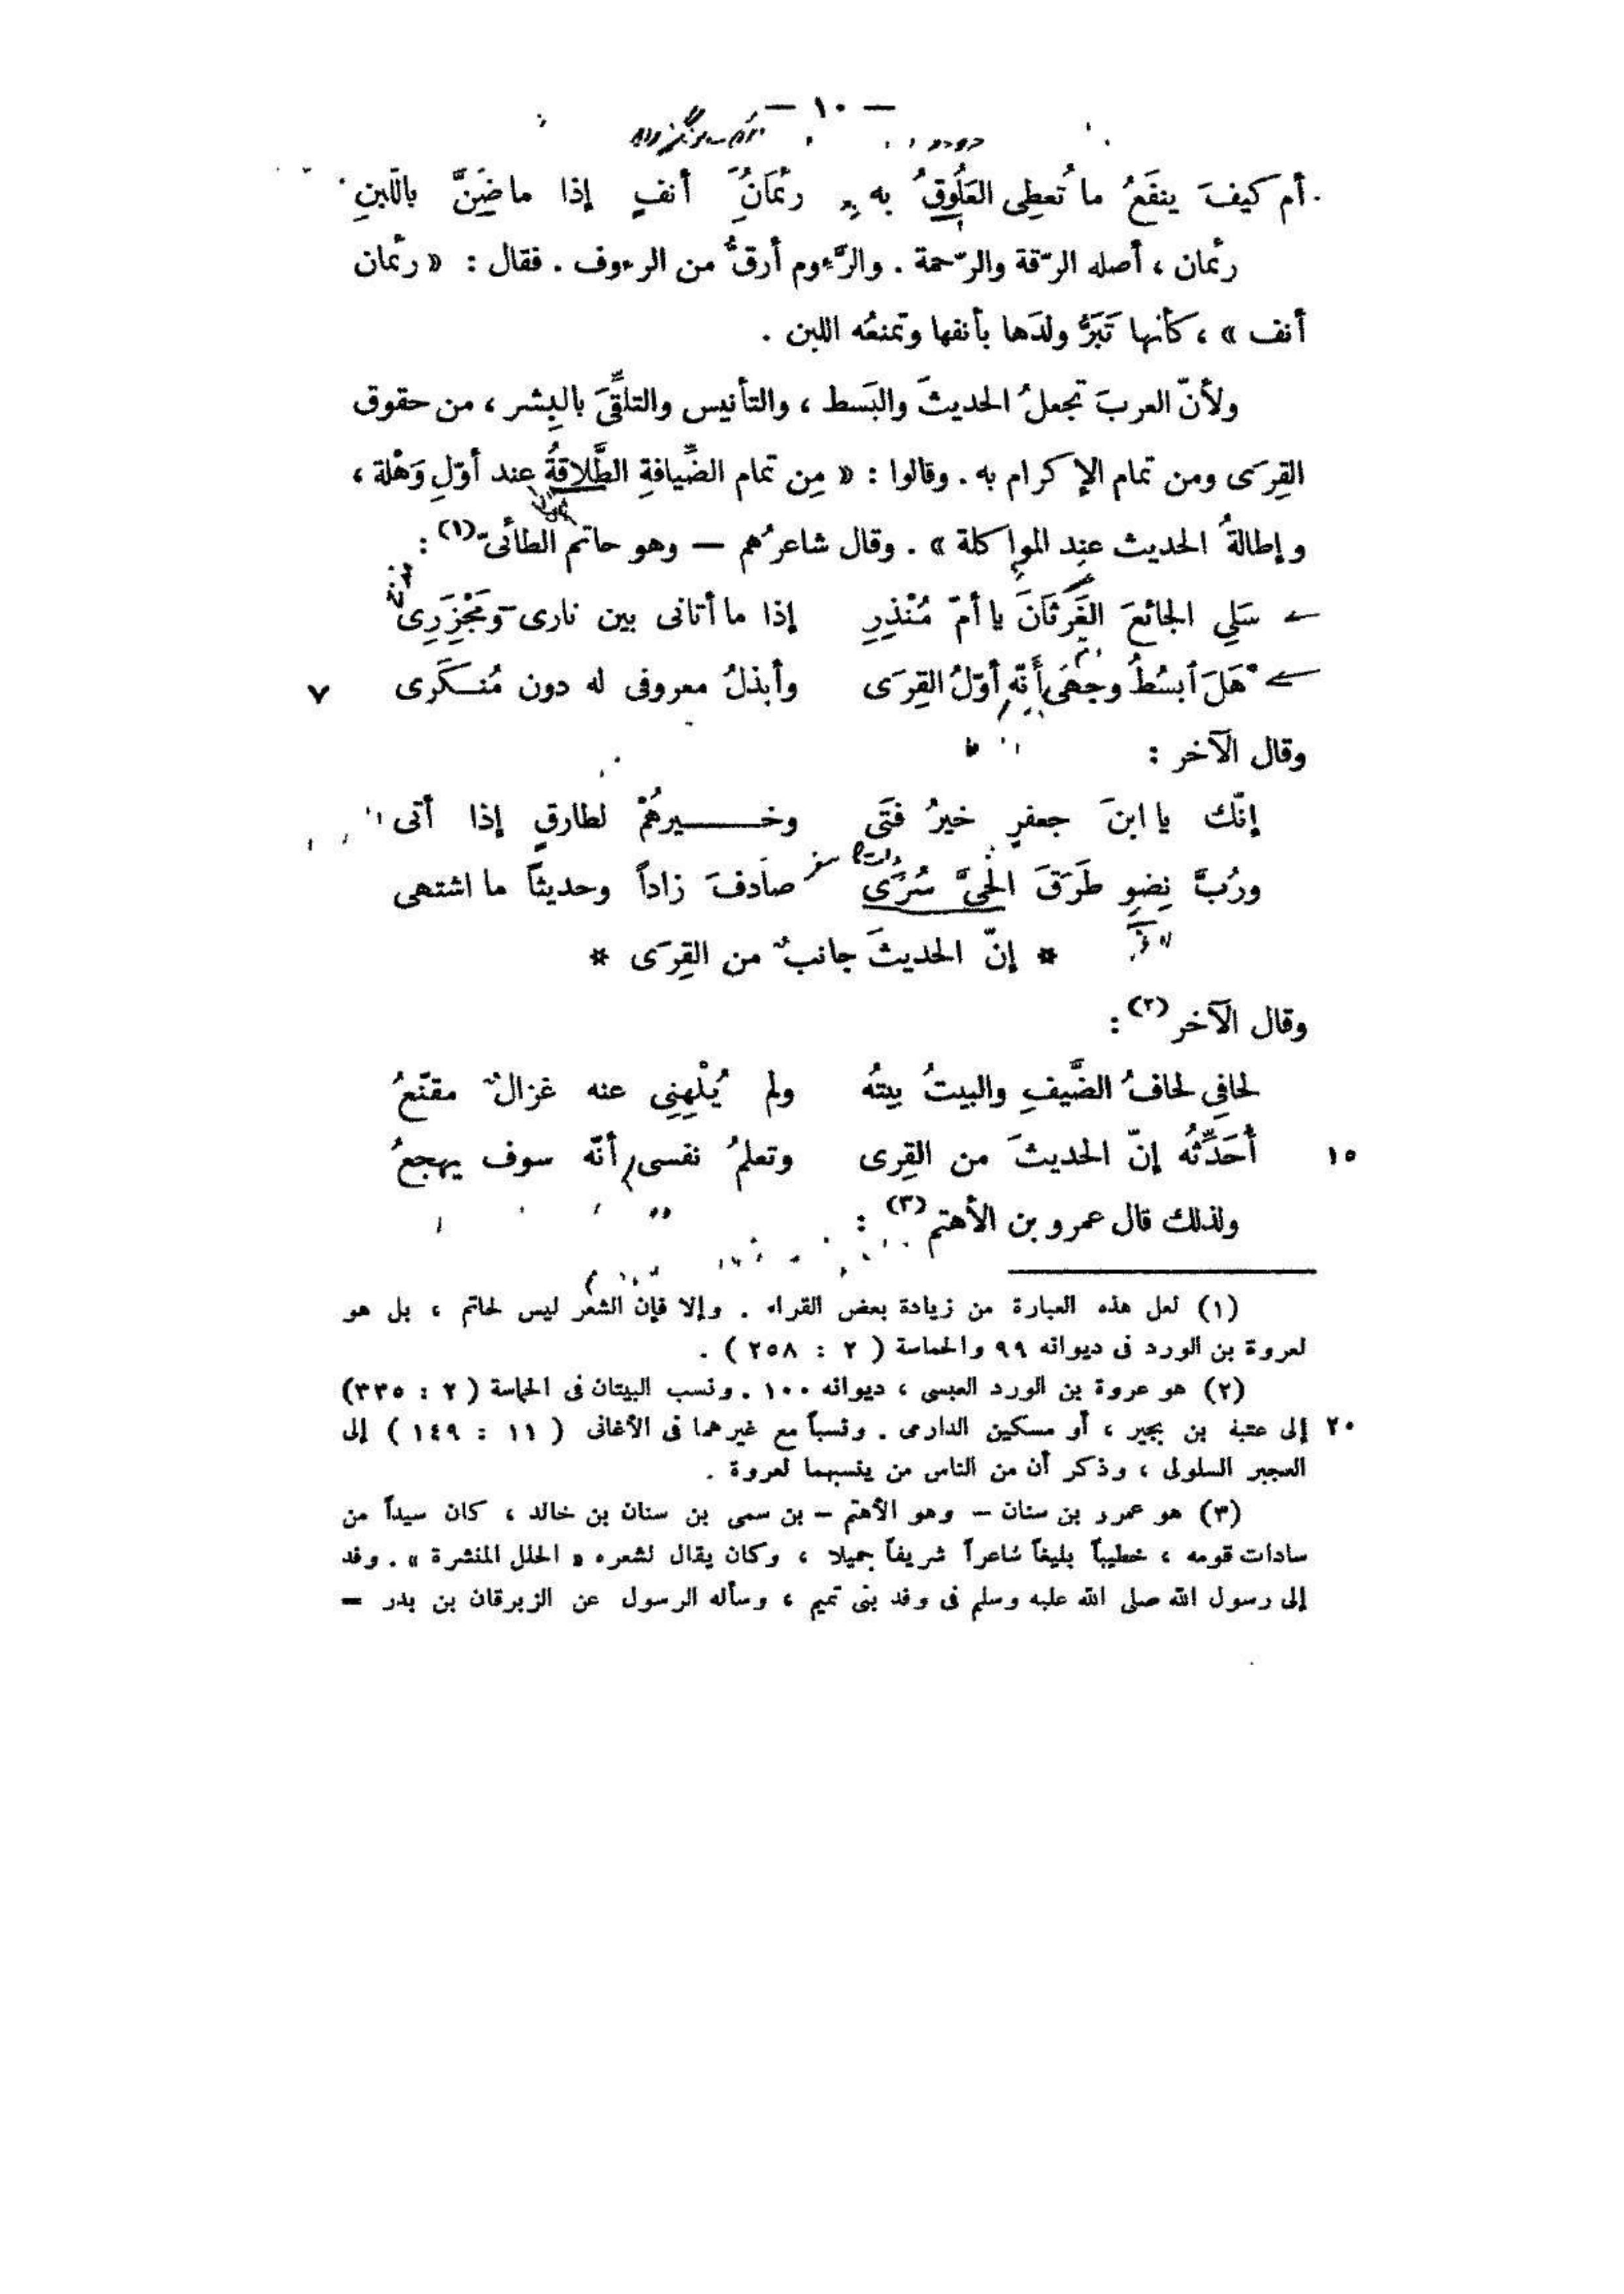 — ١٠ —
أم كيفَ ينفَعُ ما تُعطِى العَلُوقُ به رئمَانُ أنفٍ إذا ما ضَنَّ باللبنِ
رئمان ، أصله الرّقة والرّحمة . والرَّءوم أرقُّ من الرءوف . فقال : « رئمان
أنف » ، كأنها تَبَرُّ ولدَها بأنفها وتمنعُه اللبن .
ولأنّ العربَ تجعلُ الحديثَ والبَسط ، والتأنيس والتلقِّىَ بالبِشر ، من حقوق
القِرَى ومن تمام الإكرام به . وقالوا : « مِن تمام الضِّيافةِ الطَّلاقةُ عند أوّلِ وَهْلة ،
وإطالةُ الحديث عند المواكلة » . وقال شاعرُهم — وهو حاتم الطائىّ (١) :
سَلِي الجائعَ الغَرْثَانَ يا أمّ مُنْذِرِ إذا ما أتانى بين نارى ومَجْزِرِى
هَلَ اَبسُطُ وجهىَ أنّه أوّلُ القِرَى وأبذلُ معروفى له دون مُنكَرى
٧
وقال الآخر :
إنّك يا ابنَ جعفرٍ خيرُ فتَى وخيرهُمْ لطارقٍ إذا أتى
ورُبَّ نِضوٍ طَرَقَ الحىَّ سُرَى صادفَ زاداً وحديثاً ما اشتهى
* إنّ الحديثَ جانبٌ من القِرَى *
وقال الآخر (٢) :
لحافى لحافُ الضَّيفِ والبيتُ بيتُه ولم يُلْهِنِى عنه غزالٌ مقنّعُ
١٥ أُحَدِّثُه إنّ الحديثَ من القِرى وتعلمُ نفسى أنّه سوف يهجعُ
ولذلك قال عمرو بن الأهتم (٣) :
(١) لعل هذه العبارة من زيادة بعض القراء . وإلا فإن الشعر ليس لحاتم ، بل هو
لعروة بن الورد فى ديوانه ٩٩ والحماسة ( ٢ : ٢٥٨ ) .
(٢) هو عروة بن الورد العبسى ، ديوانه ١٠٠ . ونسب البيتان فى الحماسة ( ٢ : ٣٣٥)
٢٠ إلى عتبة بن بجير ، أو مسكين الدارمى . ونسباً مع غيرهما فى الأغانى ( ١١ : ١٤٩ ) إلى
العجير السلولى ، وذكر أن من الناس من ينسبهما لعروة .
(٣) هو عمرو بن سنان — وهو الأهتم — بن سمى بن سنان بن خالد ، كان سيداً من
سادات قومه ، خطيباً بليغاً شاعراً شريفاً جميلا ، وكان يقال لشعره « الحلل المنشرة » . وفد
إلى رسول الله صلى الله عليه وسلم فى وفد بنى تميم ، وسأله الرسول عن الزبرقان بن بدر =